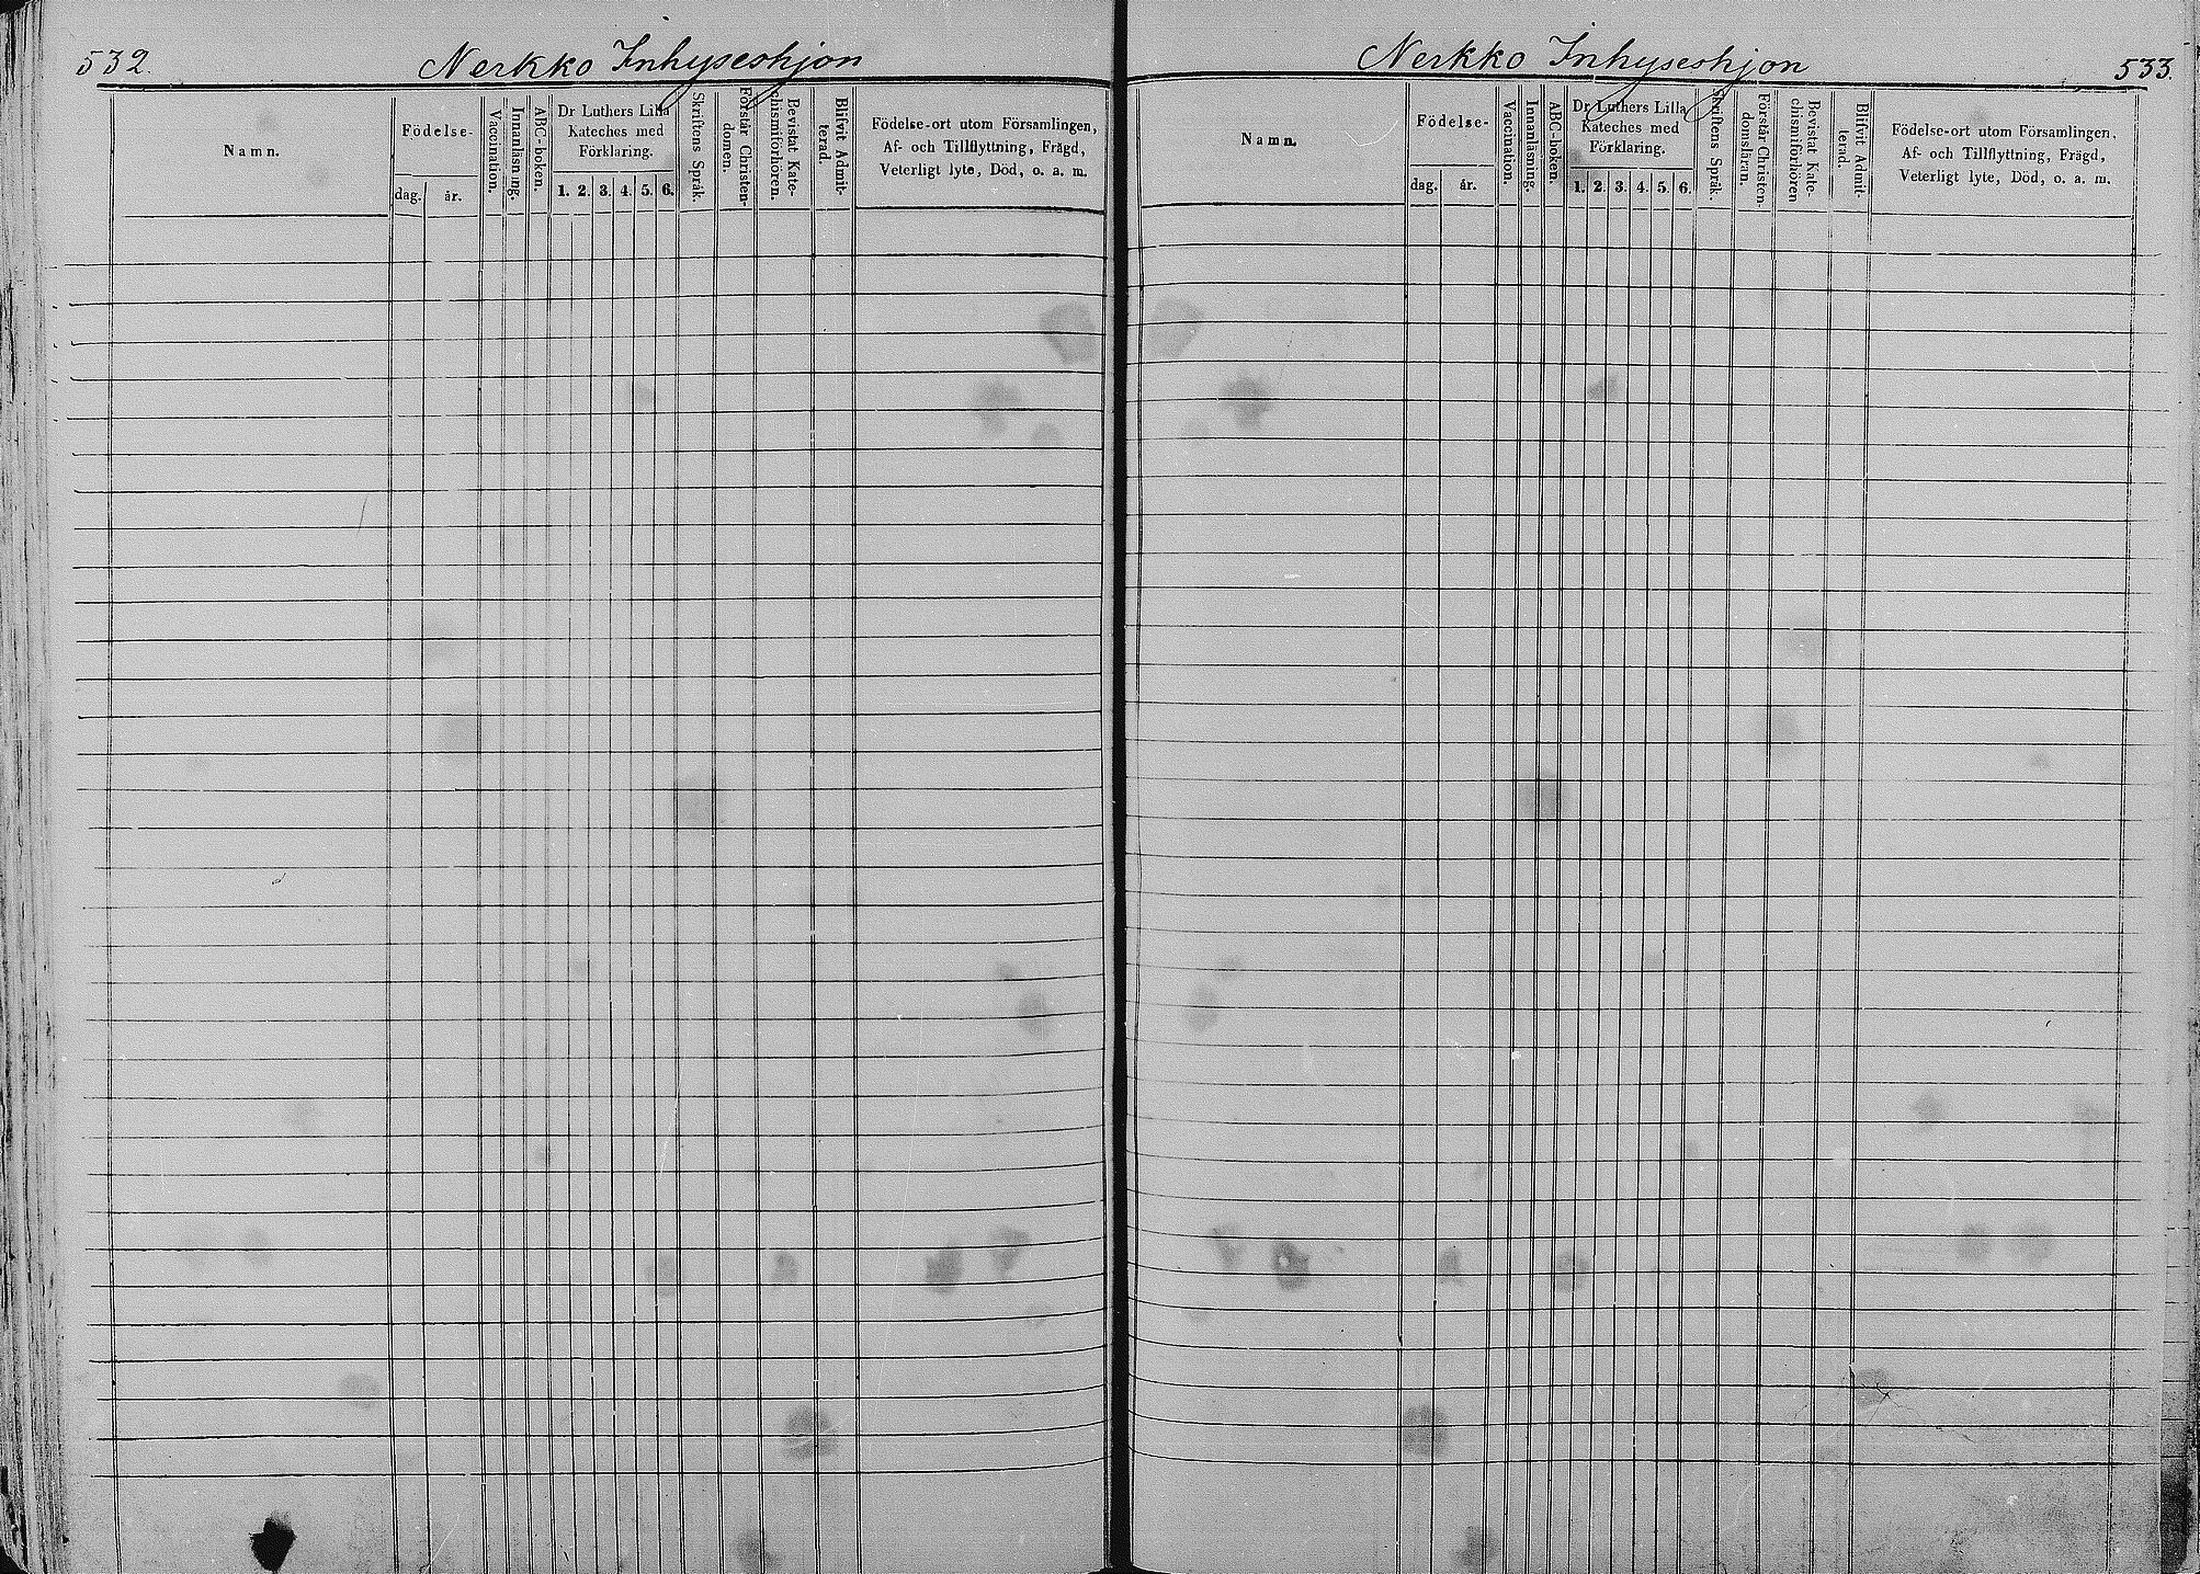 532.
Nerkko Inhyseshjon
Namn.
Födelse-
dag.
år.
Vaccination.
Innanläsning.
ABC-boken.
Dr Luthers Lilla
Kateches med
Förklaring.
1. 2. 3. 4. 5. 6.
Skriftens Språk.
Förstår Christen-
domen.
Bevistat Kate-
chismiförhören.
Blifvit Admit-
terad.
Födelse-ort utom Församlingen,
Af- och Tillflyttning, Frägd,
Veterligt lyte, Död, o. a. m.
Nerkko Inhyseshjon
533.
Namn.
Födelse-
dag.
år.
Vaccination.
Innanläsning.
ABC-boken.
Dr Luthers Lilla
Kateches med
Förklaring.
1. 2. 3. 4. 5. 6.
Skriftens Språk.
Förstår Christen-
domsläran.
Bevistat Kate-
chismiförhören
Blifvit Admit-
terad.
Födelse-ort utom Församlingen,
Af- och Tillflyttning, Frägd,
Veterligt lyte, Död, o. a. m.